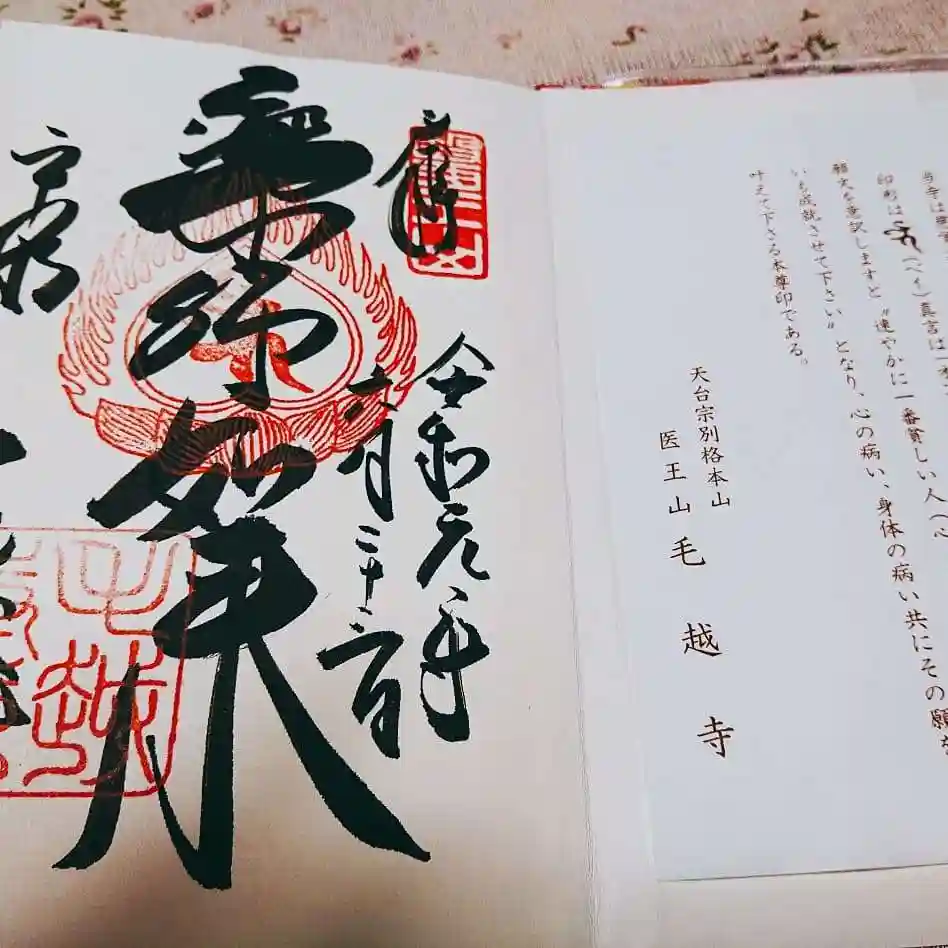 当寺は
印形は(ベイ)真言は一
願文を意訳しますと〝速やかに一番貧しい人(心
いも成就させて下さい〟となり、心の病い、身体の病い共にその願を
叶えて下さる本尊印である。
天台宗別格本山
医王山毛越寺
奉拝
令和元年
六月二十
薬師如来
毛越